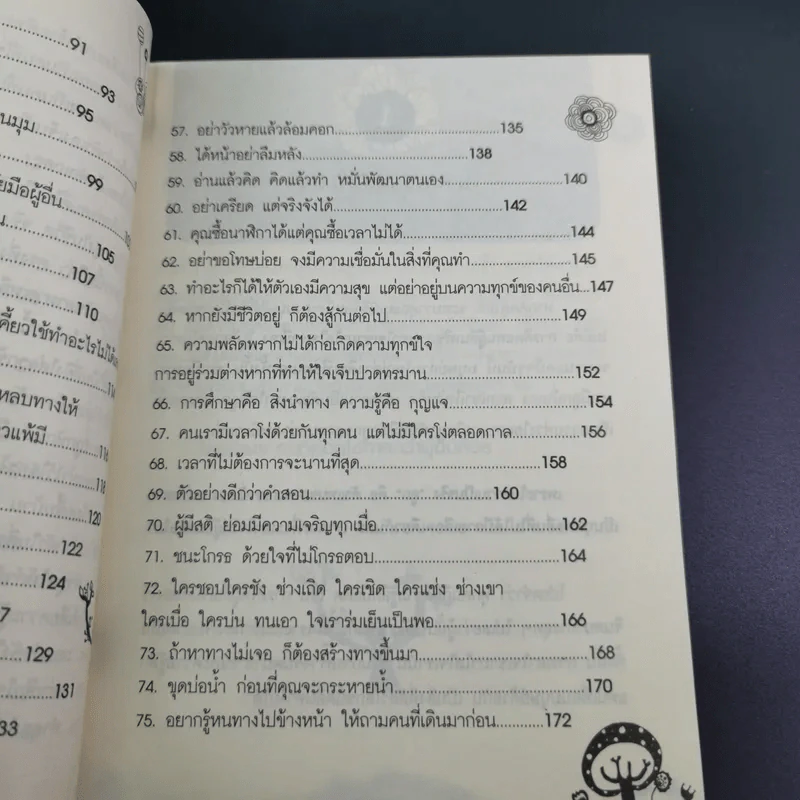 91
93
95
นมุม
99
ยมือผู้อื่น
105
107
110
คี้ยวใช้ทำอะไรไม่ได้
หลบทางให้
วแพ้มี
116
118
120
122
124
7
129
131
33
57. อย่าวัวหายแล้วล้อมคอก 135
58. ได้หน้าอย่าลืมหลัง 138
59. อ่านแล้วคิด คิดแล้วทำ หมั่นพัฒนาตนเอง 140
60. อย่าเครียด แต่จริงจังได้ 142
61. คุณซื้อนาฬิกาได้แต่คุณซื้อเวลาไม่ได้ 144
62. อย่าขอโทษบ่อย จงมีความเชื่อมั่นในสิ่งที่คุณทำ 145
63. ทำอะไรก็ได้ให้ตัวเองมีความสุข แต่อย่าอยู่บนความทุกข์ของคนอื่น 147
64. หากยังมีชีวิตอยู่ ก็ต้องสู้กันต่อไป 149
65. ความพลัดพรากไม่ได้ก่อเกิดความทุกข์ใจ
การอยู่ร่วมต่างหากที่ทำให้ใจเจ็บปวดทรมาน 152
66. การศึกษาคือ สิ่งนำทาง ความรู้คือ กุญแจ 154
67. คนเรามีเวลาโง่ด้วยกันทุกคน แต่ไม่มีใครโง่ตลอดกาล 156
68. เวลาที่ไม่ต้องการจะนานที่สุด 158
69. ตัวอย่างดีกว่าคำสอน 160
70. ผู้มีสติ ย่อมมีความเจริญทุกเมื่อ 162
71. ชนะโกรธ ด้วยใจที่ไม่โกรธตอบ 164
72. ใครชอบใครชัง ช่างเถิด ใครเชิด ใครแช่ง ช่างเขา
ใครเบื่อ ใครบ่น ทนเอา ใจเราร่มเย็นเป็นพอ 166
73. ถ้าหาทางไม่เจอ ก็ต้องสร้างทางขึ้นมา 168
74. ขุดบ่อน้ำ ก่อนที่คุณจะกระหายน้ำ 170
75. อยากรู้หนทางไปข้างหน้า ให้ถามคนที่เดินมาก่อน 172